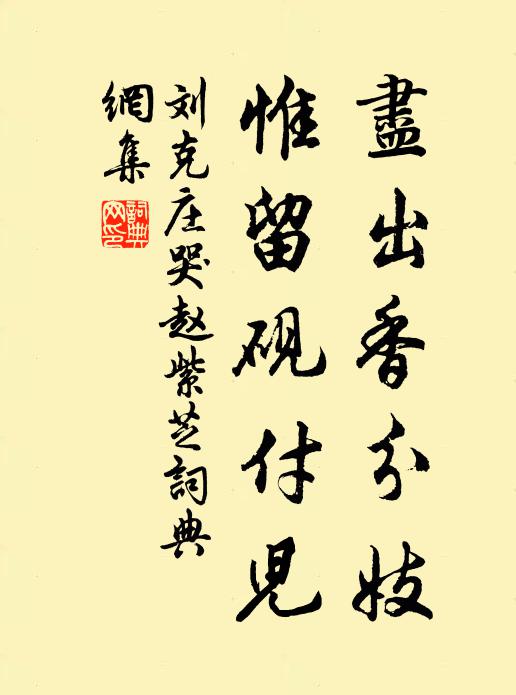 盡出香分妓
惟留硯付兒
刘克庄哭赵紫芝詞典
網集
詞典
网印